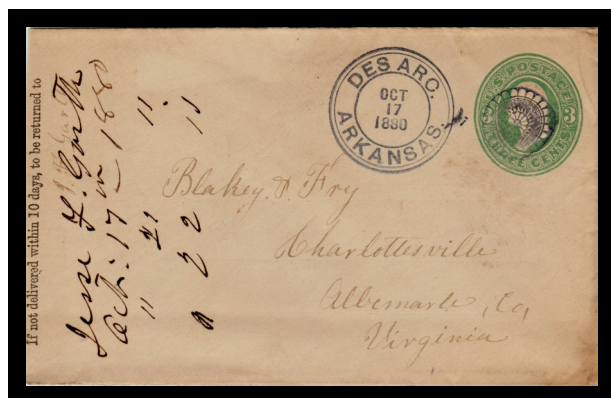 If not delivered within 10 days, to be returned to
Jesse L. Garth
Oct. 17 in 1880
" 21 "
" 22 "
DES ARC.
OCT
17
1880
ARKANSAS.
U.S. POSTAGE
3 3
THREE CENTS
Blakey & Fry
Charlottesville
Albemarle, Co,
Virginia